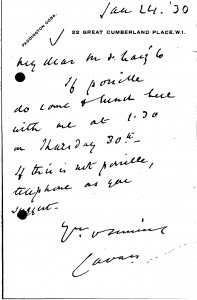 Jan 24. '30
PADDINGTON 0088.
22 GREAT CUMBERLAND PLACE. W.1.
My dear
If possible
do come & lunch here
with me at 1.30
on Thursday 30th
If this is not possible,
telephone as you
suggest.
Yrs
Cavan